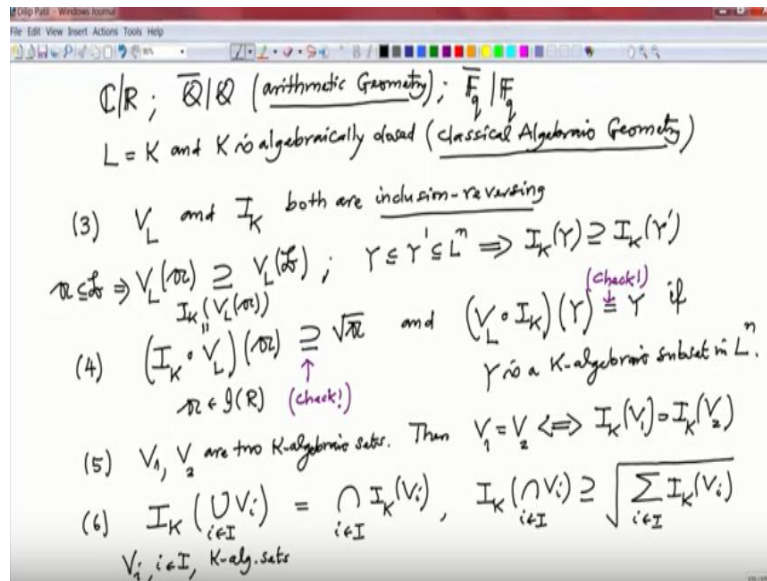 Dilip Patil - Windows Journal
File Edit View Insert Actions Tools Help
ℂ|ℝ ; ℚ̅|ℚ (arithmetic Geometry) ; 𝔽̅_q | 𝔽_q
L = K and K is algebraically closed (classical Algebraic Geometry)
(3) V_L and I_K both are inclusion-reversing
𝔞 ⊆ 𝔟 ⇒ V_L(𝔞) ⊇ V_L(𝔟) ; Y ⊆ Y' ⊆ L^n ⇒ I_K(Y) ⊇ I_K(Y')
I_K(V_L(𝔞)) (check!)
(4) (I_K ∘ V_L)(𝔞) ⊇ √𝔞 and (V_L ∘ I_K)(Y) = Y if
𝔞 ∈ 𝓘(R) (check!) Y is a K-algebraic subset in L^n.
(5) V_1, V_2 are two K-algebraic sets. Then V_1 = V_2 ⇔ I_K(V_1) = I_K(V_2)
(6) I_K(⋃_{i∈I} V_i) = ⋂_{i∈I} I_K(V_i), I_K(⋂_{i∈I} V_i) ⊇ √(∑_{i∈I} I_K(V_i))
V_i, i∈I, K-alg. sets